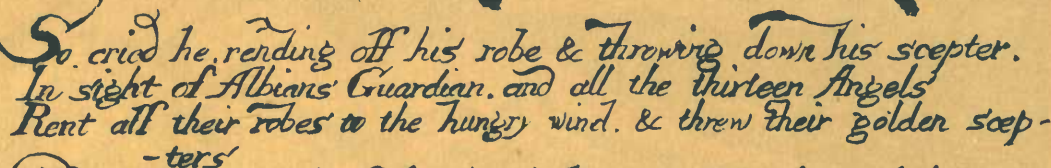 So cried he, rending off his robe & throwing down his scepter.
In sight of Albions Guardian, and all the thirteen Angels
Rent off their robes to the hungry wind, & threw their golden scep-
-ters